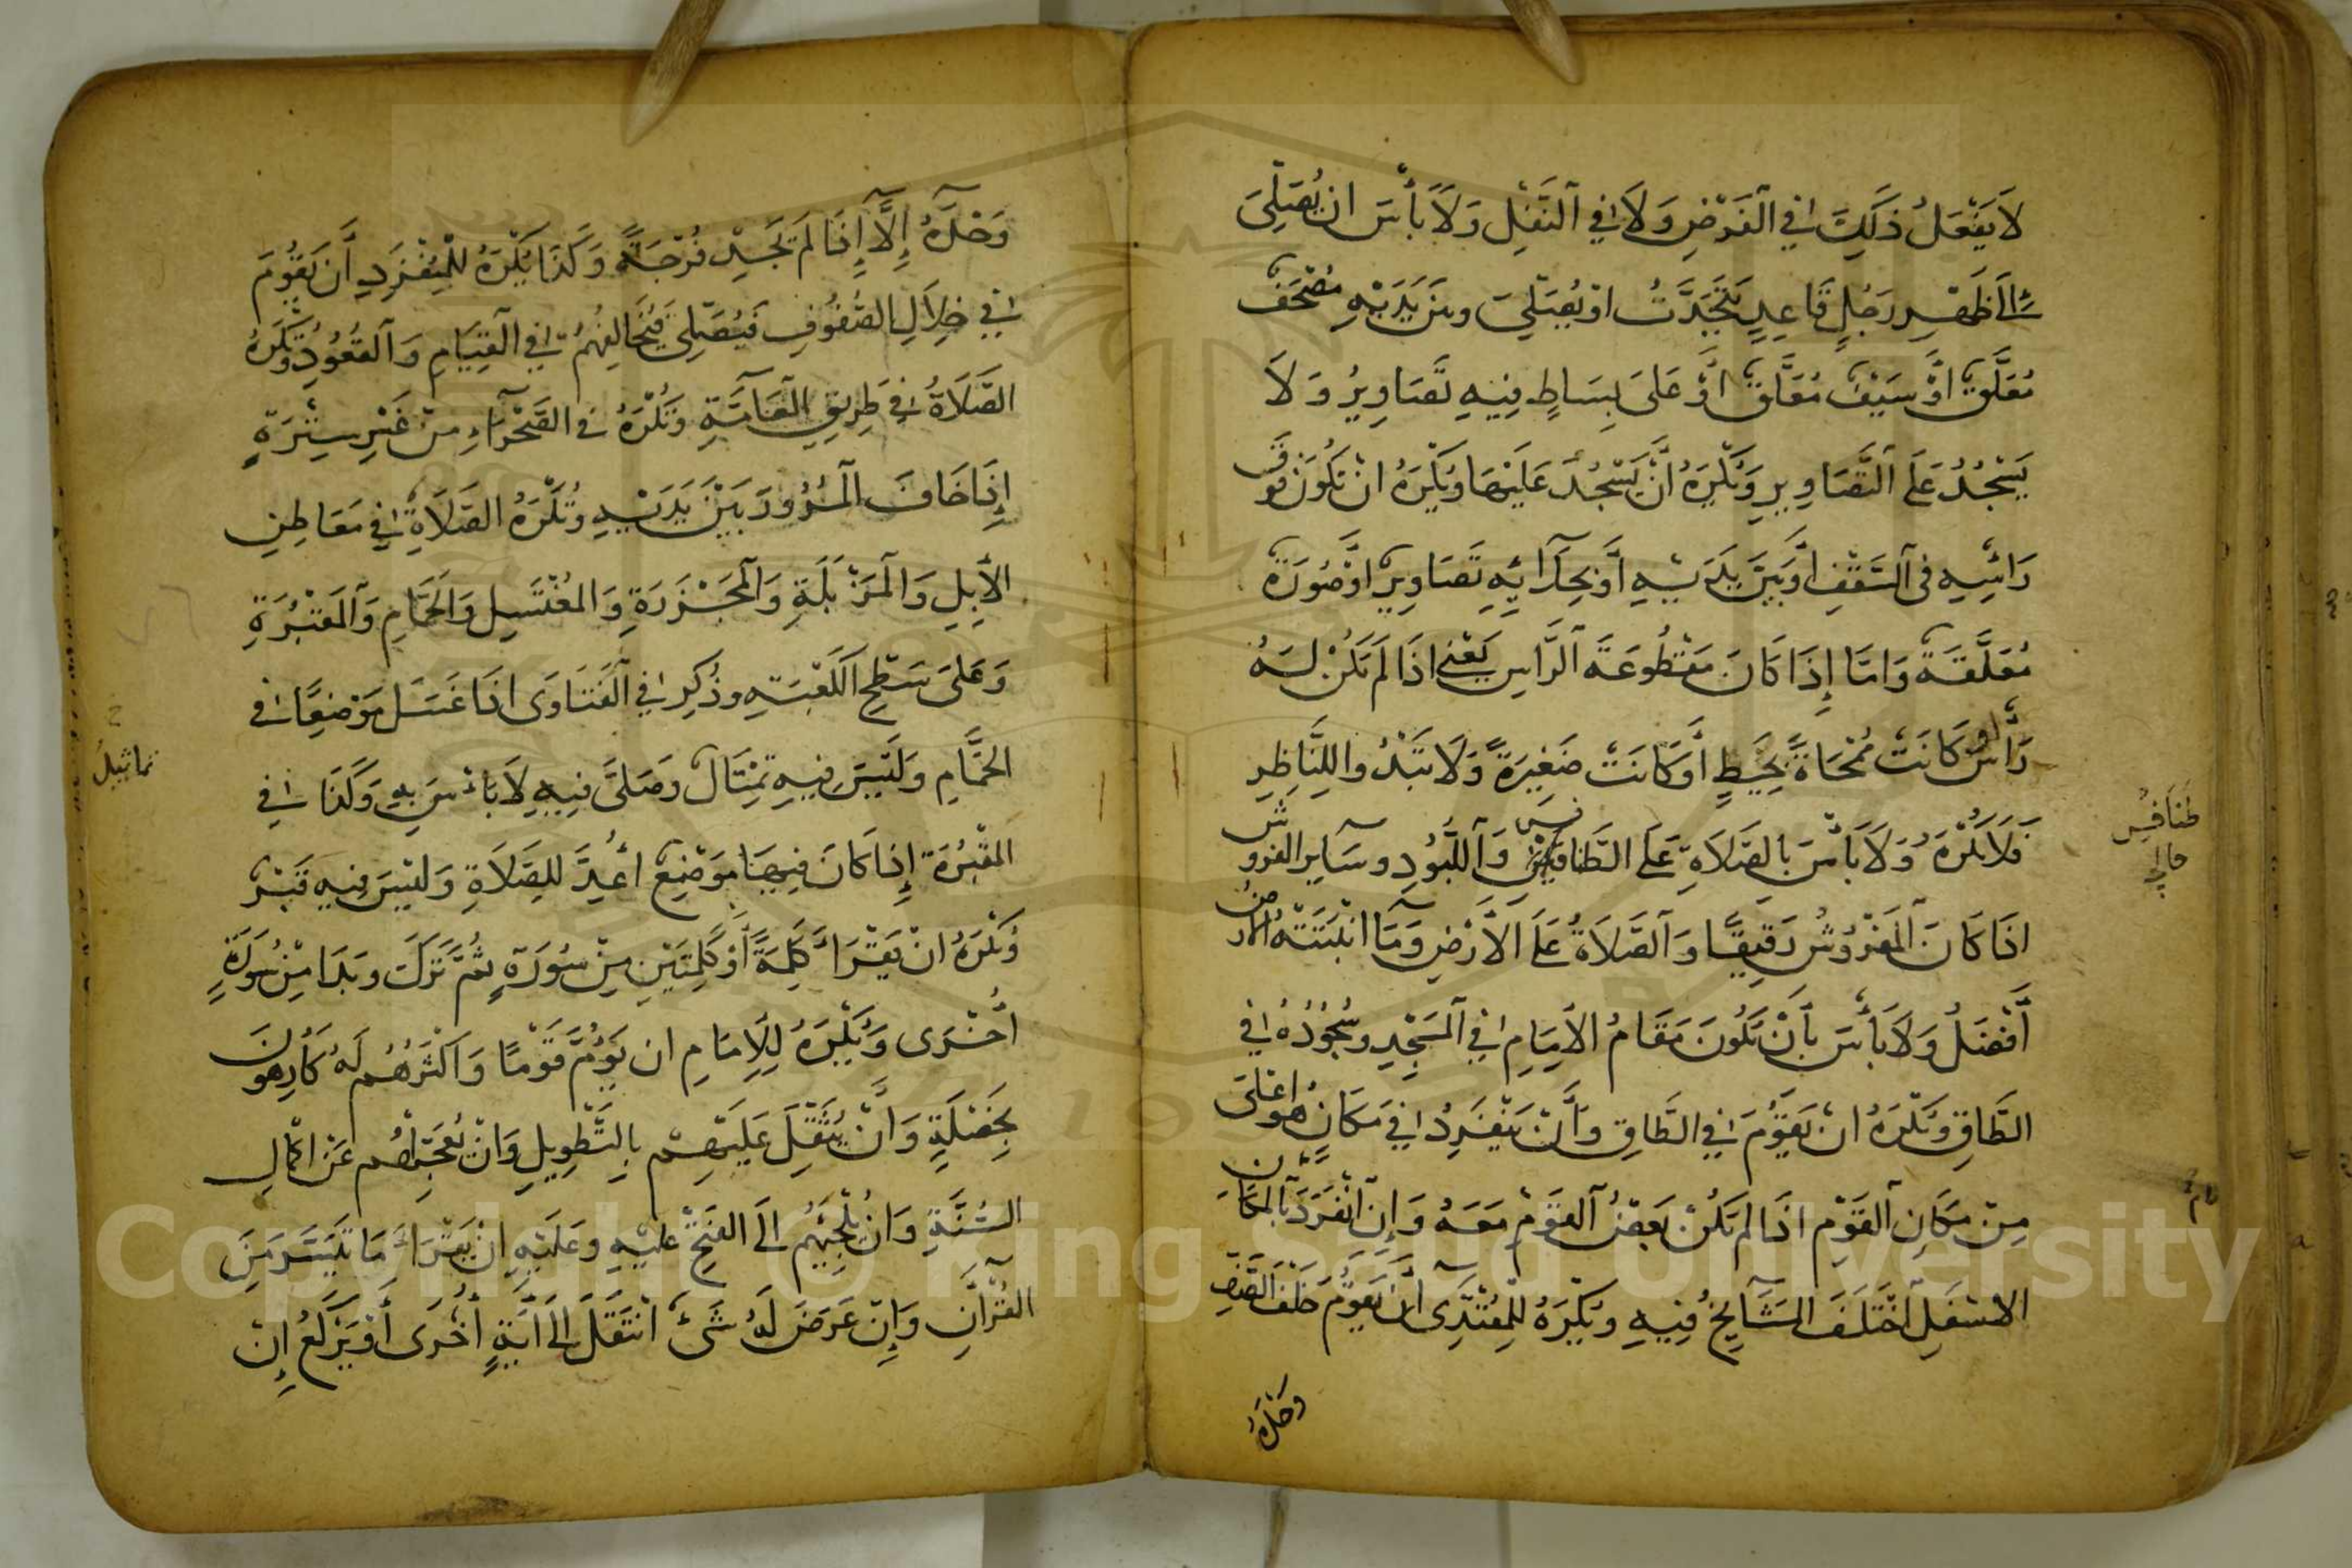 لَا يَفْعَلُ ذَلِكَ فِي الْفَرْضِ وَلَا فِي النَّفْلِ وَلَا بَأْسَ ان يُصَلِّيَ
إِلَى ظَهْرِ رَجُلٍ قَاعِدٍ يَتَحَدَّثُ اوْ يُصَلِّيَ وبَيْنَ يَدَيْهِ مُصْحَفٌ
مُعَلَّقٌ أَوْ سَيْفٌ مُعَلَّقٌ أَوْ عَلَى بِسَاطٍ فِيهِ تَصَاوِيرُ وَلَا
يَسْجُدُ عَلَى التَّصَاوِيرِ وَيُكْرَهُ أَنْ يَسْجُدَ عَلَيْهَا وَيُكْرَهُ انْ يَكُونَ فَوْقَ
رَائْسِهِ فِي السَّقْفِ اوْ بَيْنَ يَدَيْهِ أَوْ بِحِذَائِهِ تَصَاوِيرُ اوْ صُورَةٌ
مُعَلَّقَةٌ وَامَّا إِذَا كَانَ مَقْطُوعَةَ الرَّاسِ يَعْنِي اذَا لَمْ يَكُنْ لَهُ
رَأْسٌ او كَانَتْ مُمْحَاةً بِخَيْطٍ أَوْ كَانَتْ صَغِيرَةً وَلَا تَبْدُوا لِلنَّاظِرِ
فَلَا يُكْرَهُ وَلَا بَأْسَ بِالصَّلَاةِ عَلَى الطَّنَافِسِ وَاللُّبُودِ وسَآيِرِ الفروش
اذَا كَانَ الْمَفْرُوشُ رَقِيقًا وَالصَّلَاةُ عَلَى الْأَرْضِ وَمَا انْبَتَتْهُ الْارْضُ
أَفْضَلُ وَلَا بَأْسَ بِأَنْ يَكُونَ مَقَامُ الْإِمَامِ فِي الْمَسْجِدِ وسُجُودُهُ فِي
الطَّاقِ وَيُكْرَهُ انْ يَقُومَ فِي الطَّاقِ وَأَنْ يَنْفَرِدَ فِي مَكَانٍ هُوَ اعْلَى
مِنْ مَكَانِ الْقَوْمِ اذَا لَمْ يَكُنْ بَعْضُ الْقَوْمِ مَعَهُ وَإِنْ انْفَرَدَ بِالْمَكَانِ
الاسْفَلِ اخْتَلَفَ الْمَشَايِخُ فِيهِ وَيُكْرَهُ لِلْمُقْتَدِي أَنْ يَقُومَ خَلْفَ الصَّفِّ
وَحْدَهُ
طَنَافِسُ
وَحْدَهُ إِلَّا إِذَا لَمْ يَجِدْ فُرْجَةً وَكَذَا يُكْرَهُ لِلْمُنْفَرِدِ أَنْ يَقُومَ
فِي خِلَالِ الصُّفُوفِ فَيُصَلِّي فَيُخَالِفُهُمْ فِي الْقِيَامِ وَالْقُعُودِ وَتُكْرَهُ
الصَّلَاةُ فِي طَرِيقِ الْعَامَّةِ وَتُكْرَهُ فِي الصَّحْرَاءِ مِنْ غَيْرِ سِتْرَةٍ
إِذَا خَافَ الْمُرُورَ بَيْنَ يَدَيْهِ وَتُكْرَهُ الصَّلَاةِ فِي مَعَاطِنِ
الْإِبِلِ وَالْمَزْبَلَةِ وَالْمَجْزَرَةِ وَالمُغْتَسَلِ وَالْحَمَّامِ وَالْمَقْبُرَةِ
وَعَلَى سَطْحِ الْكَعْبَةِ وذُكِرَ فِي الْفَتَاوَى اذَا غَسَلَ مَوْضِعًا فِي
الحَمَّامِ وَلَيْسَ فِيهِ تِمْثَالٌ وَصَلَّى فِيهِ لَا بَائْسَ بِهِ وَكَذَا فِي
المَقْبُرَةِ إِذَا كَانَ فِيهَا مَوْضِعٌ أُعِدَّ لِلصَّلَاةِ وَلَيْسَ فِيهِ قَبْرٌ
وَيُكْرَهُ انْ يَقْرَأَ كَلِمَةً أَوْ كَلِمَتَيْنِ مِنْ سُورَةٍ ثُمَّ تَرَكَ وبَدَا مِنْ سُورَةٍ
أُخْرَى وَيُكْرَهُ لِلْإِمَامِ ان يَؤُمَّ قَوْمًا وَاكْثَرُهُمْ لَهُ كَارِهُونَ
بِخَصْلَةٍ وَأَنْ يُثَقِّلَ عَلَيْهِمْ بِالتَّطْوِيلِ وَانْ يُعَجِّلَهُمْ عَنْ اكْمَالِ
السُّنَّةِ وَانْ يُلْجِئَهُمْ الَى الْفَتْحِ عَلَيْهِ وعَلَيْهِ انْ يَقْرَأَ مَا تَيَسَّرَ مِنَ
القُرْآنِ وَإِنْ عَرَضَ لَهُ شَئٌ انْتَقَلَ الَى آيَةٍ أُخْرَى أَوْ يَرْكَعُ إِنْ
تماثيل
Copyright © King Saud University